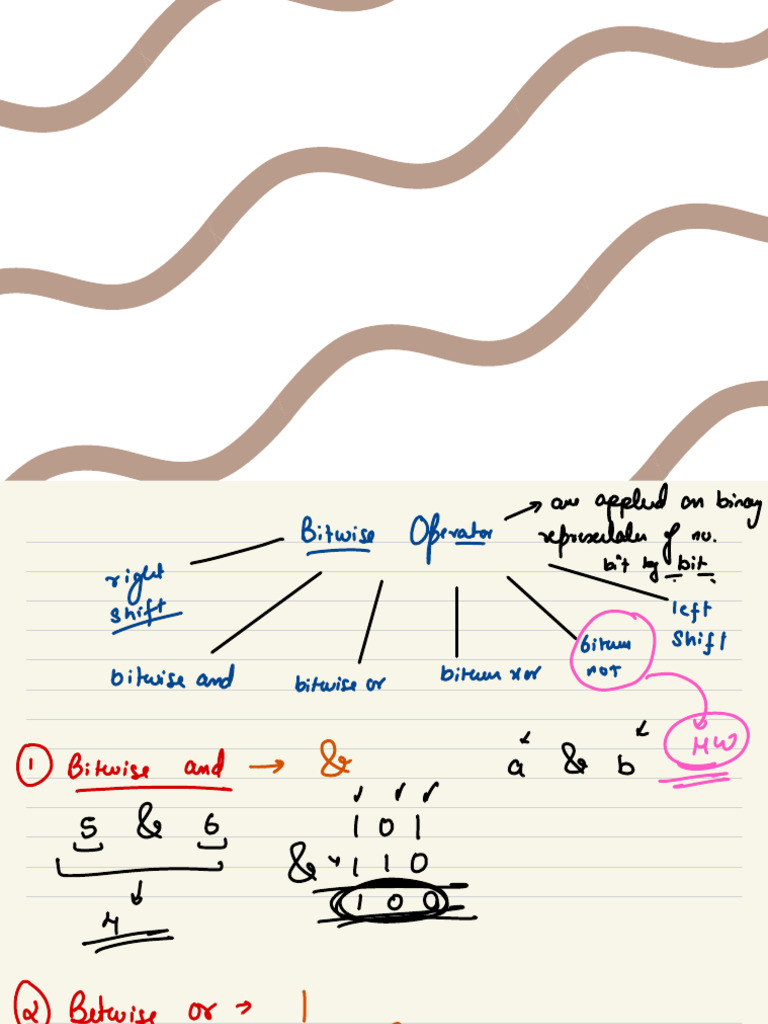 Bitwise Operator → are applied on binary
representation of no.
bit by bit
right
shift
left
shift
bitwise and
bitwise or
bitwise xor
bitwise
not
HW
① Bitwise and → &
a & b
5 & 6
4
1 0 1
& 1 1 0
1 0 0
② Bitwise or → |